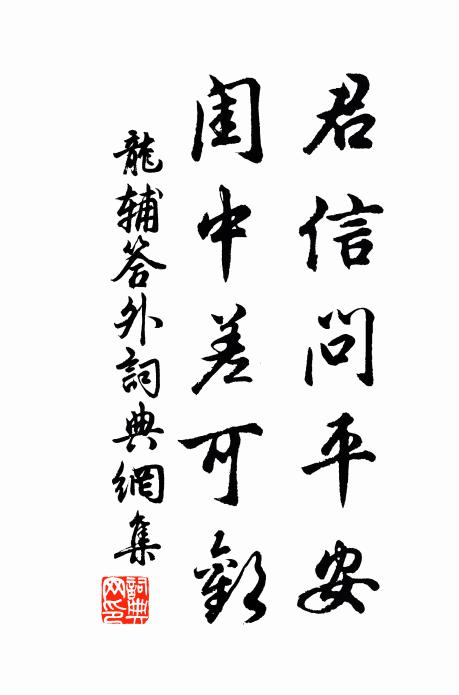 君信問平安
閨中差可歡
龍輔答外詞典網集
詞典网印